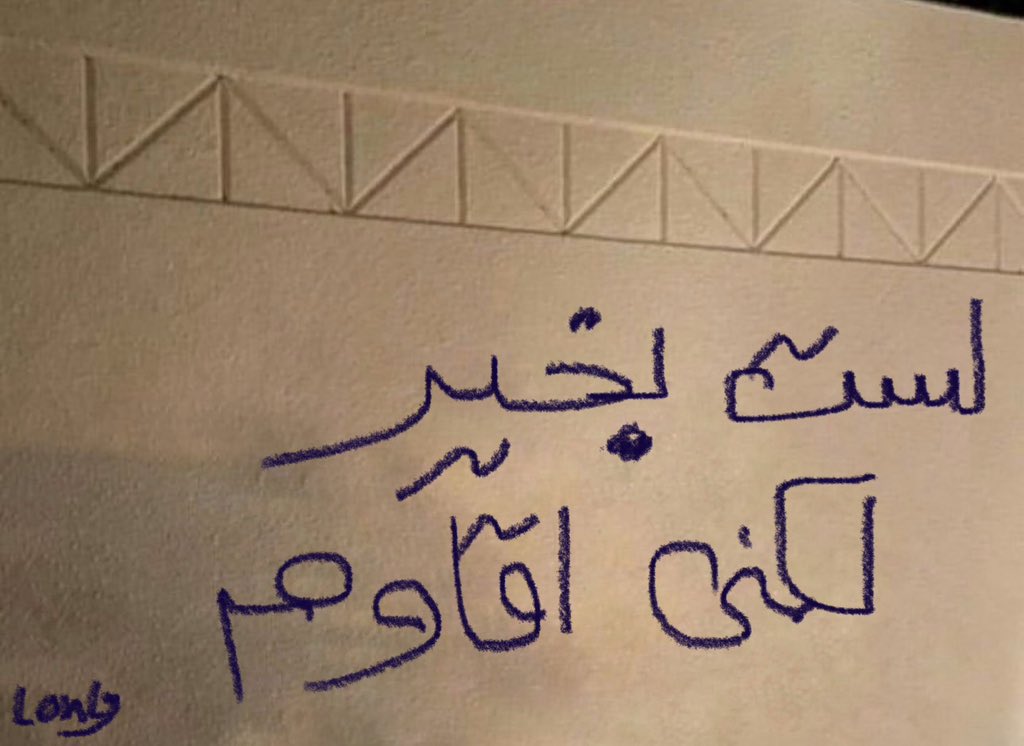 لست بخير
لكني اقاوم
Lonly